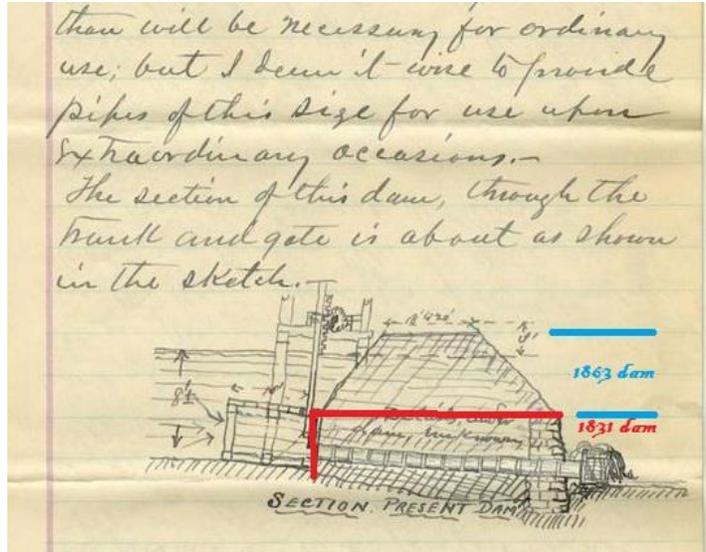 than will be necessary for ordinary
use; but I deem it wise to provide
pipes of this size for use upon
extraordinary occasions.-
The section of this dam, through the
trunk and gate is about as shown
in the sketch.-
1863 dam
8'±
1831 dam
SECTION. PRESENT DAM